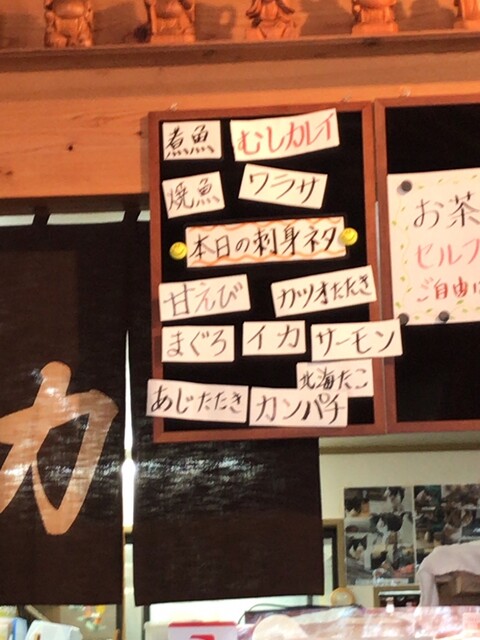 煮魚 むしカレイ
焼魚 ワラサ
本日の刺身ネタ
甘えび カツオたたき
まぐろ イカ サーモン
北海たこ
あじたたき カンパチ
お茶
セルフ
ご自由に
力